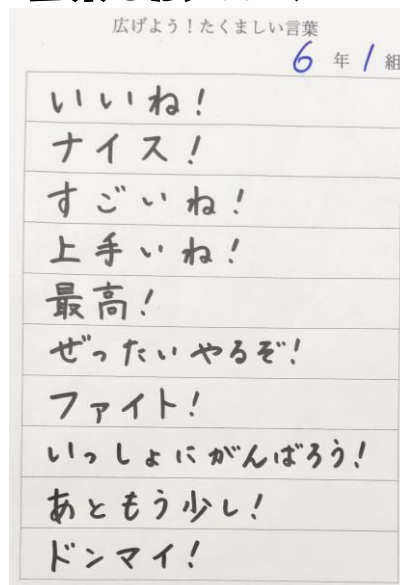 広げよう！たくましい言葉
6年1組
いいね！
ナイス！
すごいね！
上手いね！
最高！
ぜったいやるぞ！
ファイト！
いっしょにがんばろう！
あともう少し！
ドンマイ！